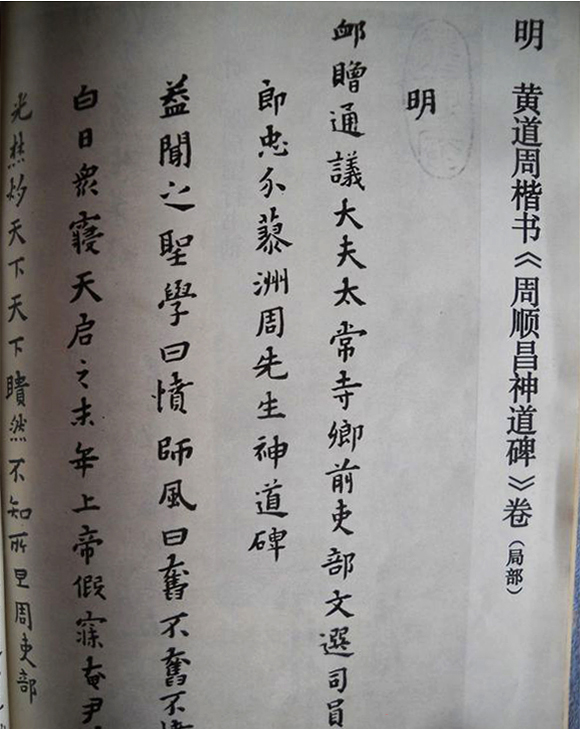 明 黄道周楷书《周顺昌神道碑》卷(局部)
明
䘏贈通議大夫太常寺卿前吏部文選司員
郎忠介蓼洲周先生神道碑
益聞之聖學曰憤師風曰奮不奮不
白日衆寢天启之末年上帝假寐奄尹
光焦灼天下天下瞶然不知所里周吏部